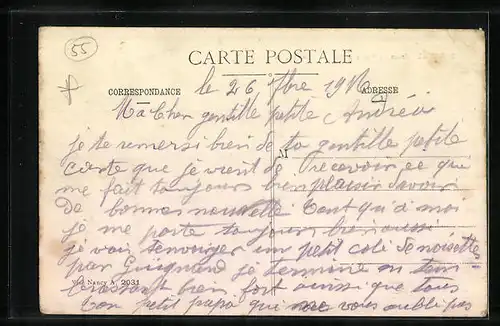 55
CARTE POSTALE
CORRESPONDANCE le 26 9bre 1916 ADRESSE
Ma Cher gentille petite Andréa
je te remersi bien de ta gentille petite
carte que je vient de recevoir ce que
M
me fait toujours bien plaisir davoir
De bonnes nouvelle tout qu'à moi
je me porte toujours bien aussi
je vais tenvoyer un petit coli de noisette
par Guignand je termine en tem
Nancy A. 2031
brassant bien fort ainsi que tous
ton petit papa qui ne vous oublie pas